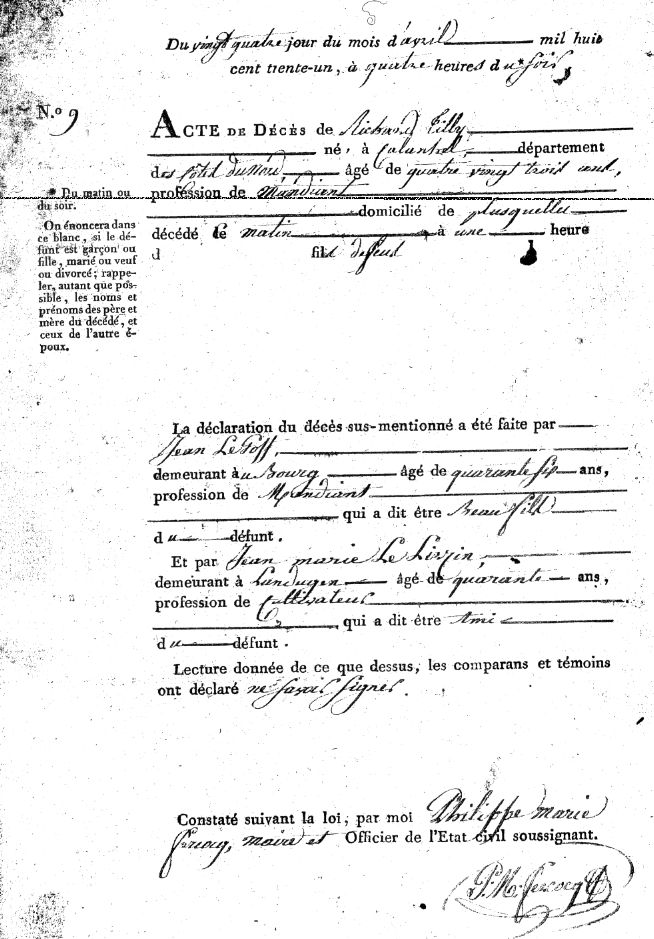 Du vingt quatre jour du mois d'avril mil huit
cent trente-un, à quatre heures du * soir
N.º 9
ACTE DE DÉCÈS de Richard Tilly
né, à Calanhel, département
des Côtes du Nord, âgé de quatre vingt trois ans,
profession de Mandiant
domicilié de plusquellec
décédé le matin à une heure
d fils de feu
* Du matin ou
du soir.
On énoncera dans
ce blanc, si le dé-
funt est garçon ou
fille, marié ou veuf
ou divorcé; rappe-
ler, autant que pos-
sible, les noms et
prénoms des père et
mère du décédé, et
ceux de l'autre é-
poux.
La déclaration du décès sus-mentionné a été faite par
Jean Le Goff,
demeurant àu Bourg âgé de quarante six ans,
profession de Mandiant
qui a dit être Beau fils
du défunt.
Et par Jean marie Le
demeurant à âgé de quarante ans,
profession de Cultivateur
qui a dit être Ami
du défunt.
Lecture donnée de ce que dessus, les comparans et témoins
ont déclaré ne savoir signer.
Constaté suivant la loi, par moi Philippe marie
maire et Officier de l'Etat civil soussignant.